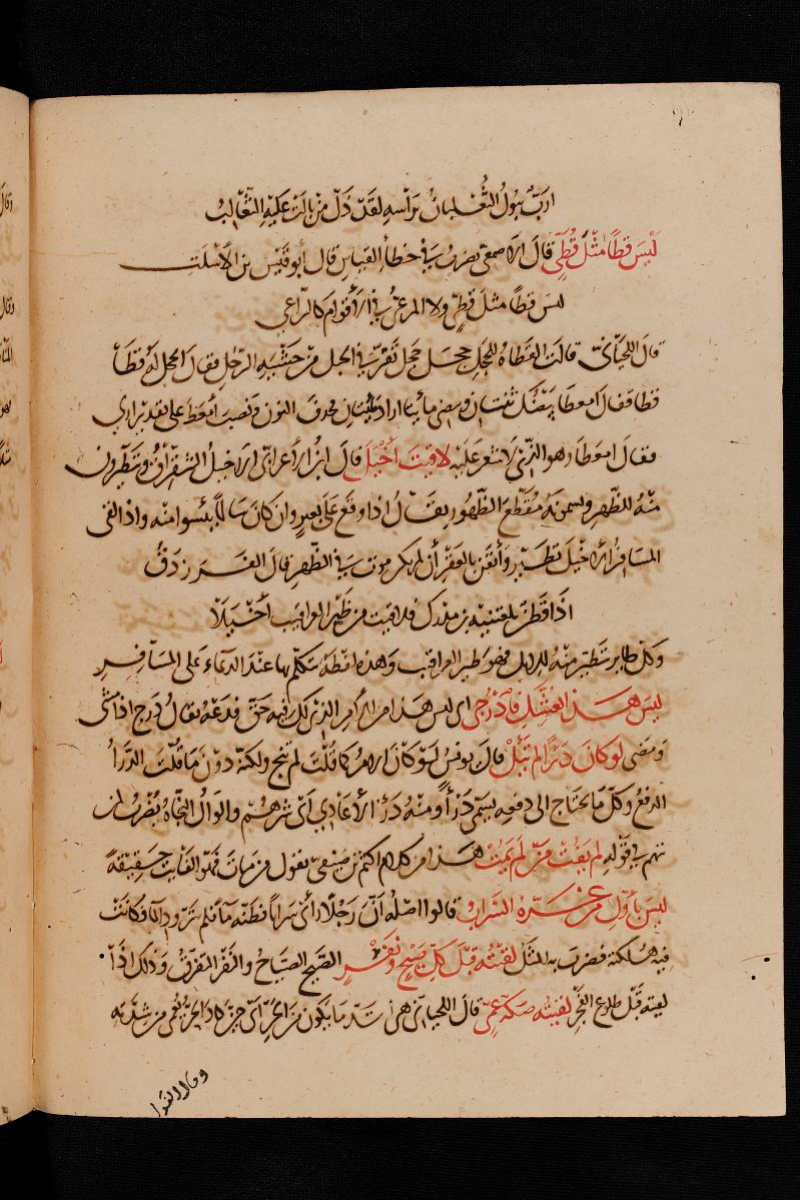 اربٌّ يبول الثُّعلبان برأسه لقد ذلّ من بالت عليه الثعالبُ
ليس قطًا مثل قُطَيّ قال الاصمعي يضرب في خطأ القياس قال ابو قيس بن الاسلت
ليس قطًا مثل قطيّ ولا المرعيّ في الاقوام كالراعي
قال اللحياني قالت القطاة للحجل حجل حجل تفرّ في الجبل من خشية الرجل فقال الحجل لها قطا
قطا قفاك امعطا بيضك ثنتان وبيضي مائتا اراد مائتان فحذف النون ونصب امعط على تقدير اري
فقال امعطا وهو الذي لا شعر عليه لاقيت أخيل قال ابن الاعرابي الاخيل الشقراق ويتطيرون
منه للظهر ويسمونه مقطع الظهور يقال اذا وقع على بعير وان كان سالما يئسوا منه واذا لقى
المسافر الاخيل تطيّر وأيقن بالعقر أن لم يكن موت في الظهر قال الفرزدق
اذا قطن بلغتنيه بن مدرك فلاقيت من طير العراقيب أخيلا
وكل طاير يتطير منه للابل فهو طير العراقيب وهذه لفظة يتكلم بها عند الدعاء على المسافر
ليس هذا بعشّك فادرجى اى ليس هذا من الامر الذي لك فيه حق فدعه يقال درج اذا مشى
ومضى لو كان درءًا لم تئل قال يونس لو كان الامر كما قلت لم تنج ولكنه دون ما قلت الدرأ
الدفع وكل ما يحتاج الى دفعه يسمّى درأ ومنه درء الاعادي اى شرهم والوأل النجاة يضرب لمن
يتهم في قوله لم يفت من لم يمت هذا من كلام اكثم بن صيفى يقول من مات فهو الفايت حقيقة
ليس بأول من غرّه السراب قالوا اصله ان رجلا رأى سرابا فظنه ماء فلم يتزود الماء فكانت
فيه هلكته فضرب به المثل لقيته قبل كل صيح ونفر الصيح الصياح والنفر التفرق وذلك اذا
لقيته قبل طلوع الفجر لقيته صكة عمى قال اللحياني هى اشد ما يكون من الحر اى حين كاد الحر يعمى من شدته
وقال الفرا